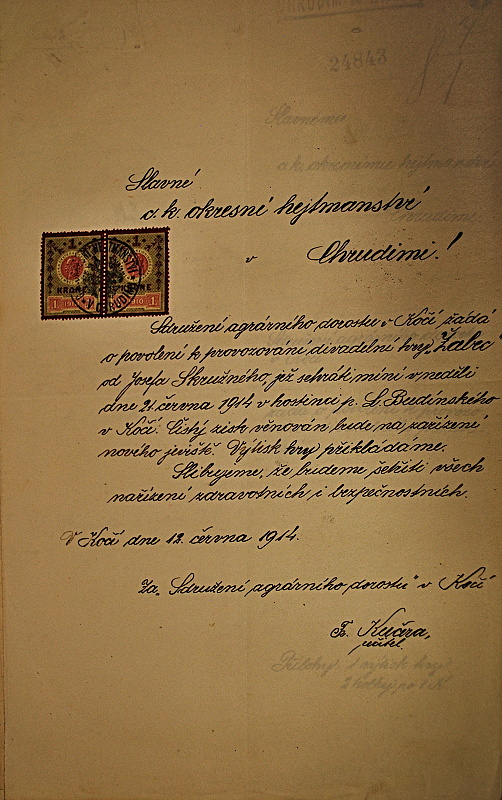 24843
Slavné
c. k. okresné hejtmanství
v Chrudimi!
1 1
1 1
Sdružení agrárního dorostu v Kočí žádá
o povolení k provozování divadelní hry „Žabec"
od Josefa Skružného, již sehráti míní v neděli
dne 21. června 1914 v hostinci p. L. Budinského
v Kočí. Čistý zisk věnován bude na zařízení
nového jeviště. Výtisk hry přikládáme.
Slibujeme, že budeme šetřiti všech
nařízení zdravotních i bezpečnostních.
V Kočí dne 12. června 1914.
Za „Sdružení agrárního dorostu" v Kočí
Fr. Kučera,
učitel.